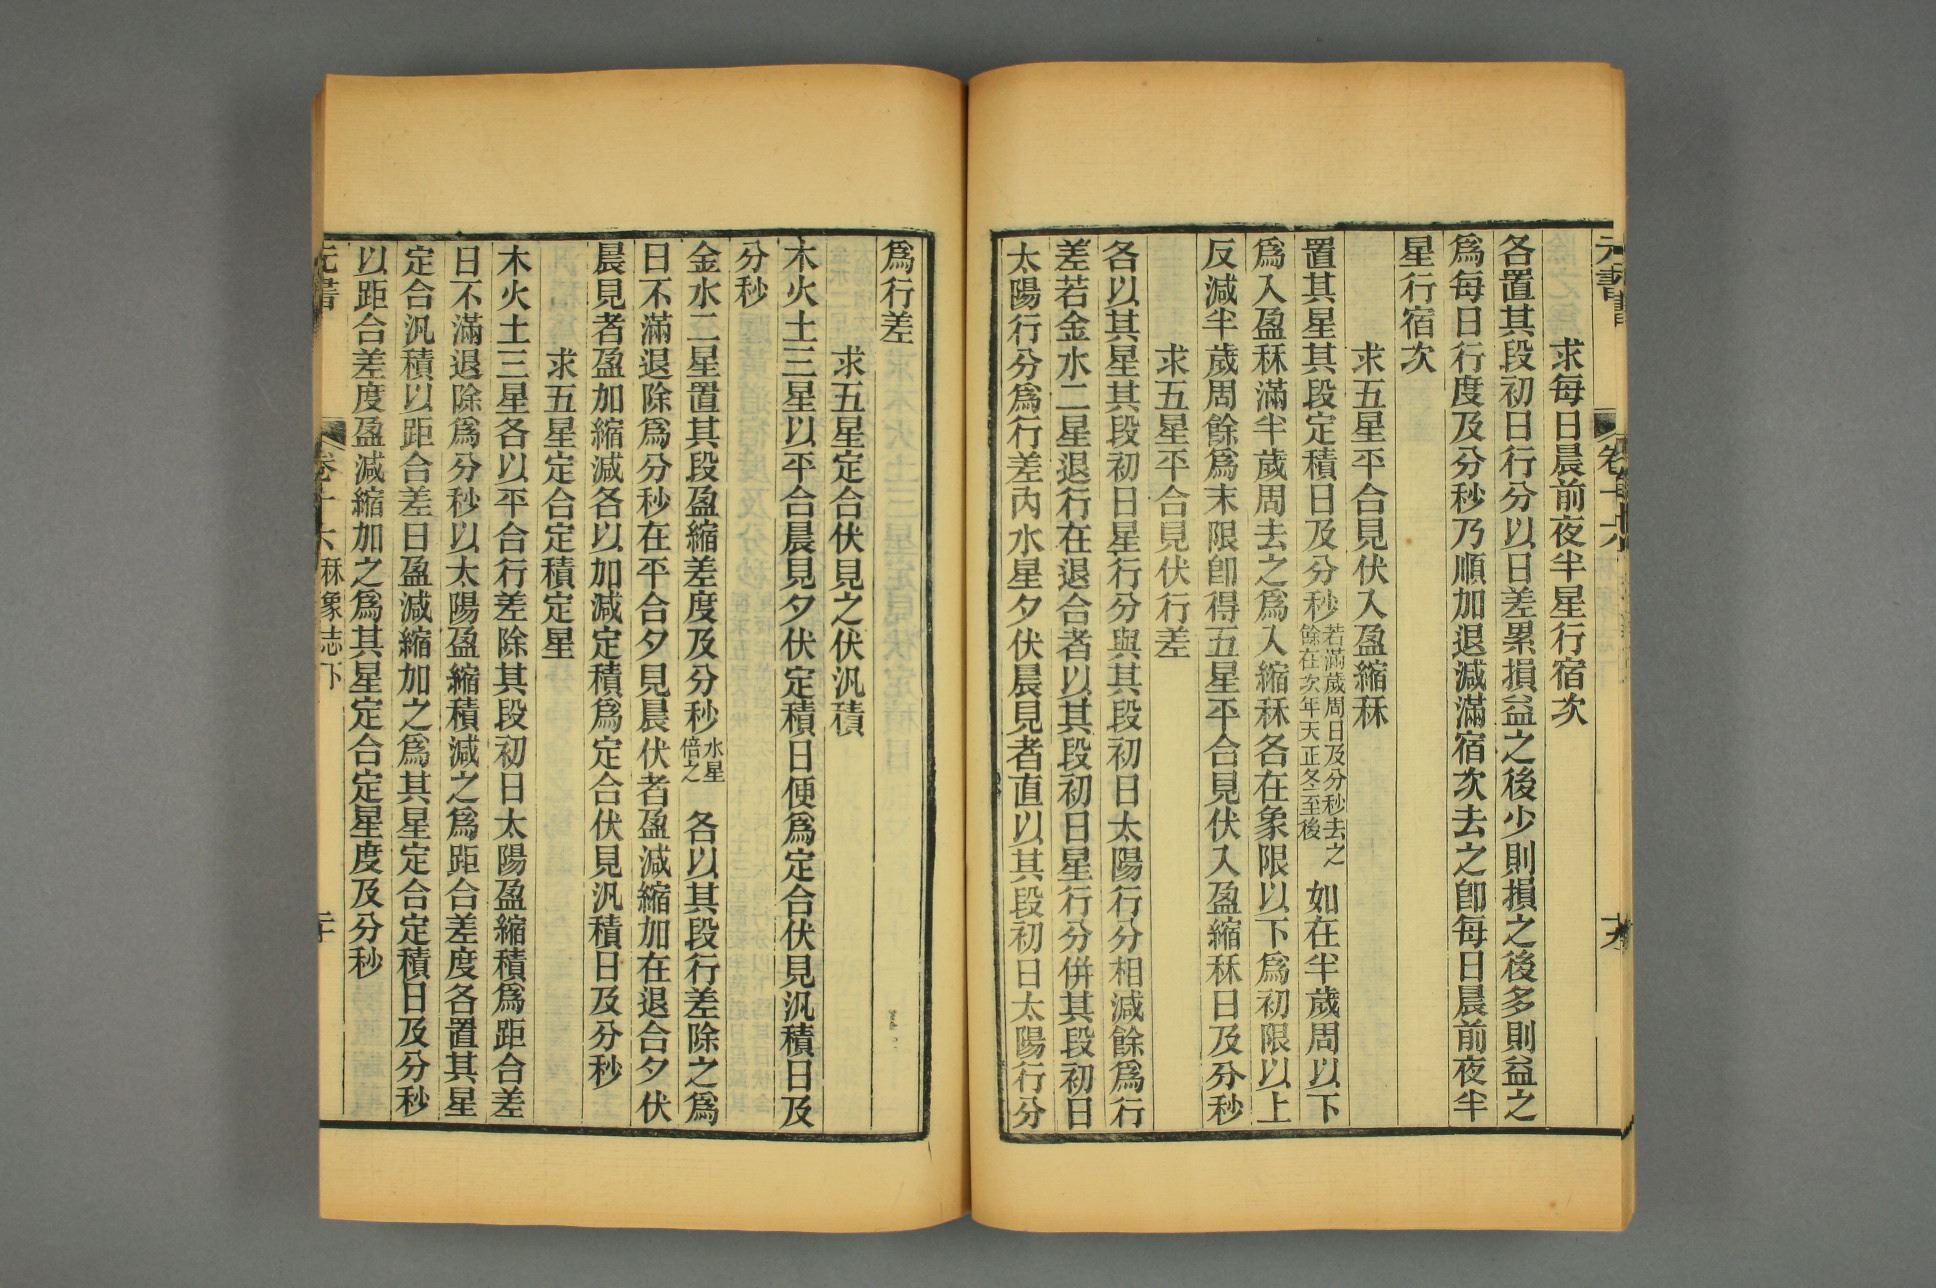 求每日晨前夜半星行宿次
各置其段初日行分以日差累損益之後少則損之後多則益之
爲每日行度及分秒乃順加退減滿宿次去之卽每日晨前夜半
星行宿次
求五星平合見伏入盈縮秝
置其星其段定積日及分秒若滿歲周日及分秒去之餘在次年天正冬至後如在半歲周以下
爲入盈秝滿半歲周去之爲入縮秝各在象限以下爲初限以上
反減半歲周餘爲末限卽得五星平合見伏入盈縮秝日及分秒
求五星平合見伏行差
各以其星其段初日星行分與其段初日太陽行分相減餘爲行
差若金水二星退行在退合者以其段初日星行分併其段初日
太陽行分爲行差內水星夕伏晨見者直以其段初日太陽行分
爲行差
求五星定合伏見之伏汎積
木火土三星以平合晨見夕伏定積日便爲定合伏見汎積日及
分秒
金水二星置其段盈縮差度及分秒水星倍之各以其段行差除之爲
日不滿退除爲分秒在平合夕見晨伏者盈減縮加在退合夕伏
晨見者盈加縮減各以加減定積爲定合伏見汎積日及分秒
求五星定合定積定星
木火土三星各以平合行差除其段初日太陽盈縮積爲距合差
日不滿退除爲分秒以太陽盈縮積減之爲距合差度各置其星
定合汎積以距合差日盈減縮加之爲其星定合定積日及分秒
以距合差度盈減縮加之爲其星定合定星度及分秒
元書
卷十六秝象志下
二十